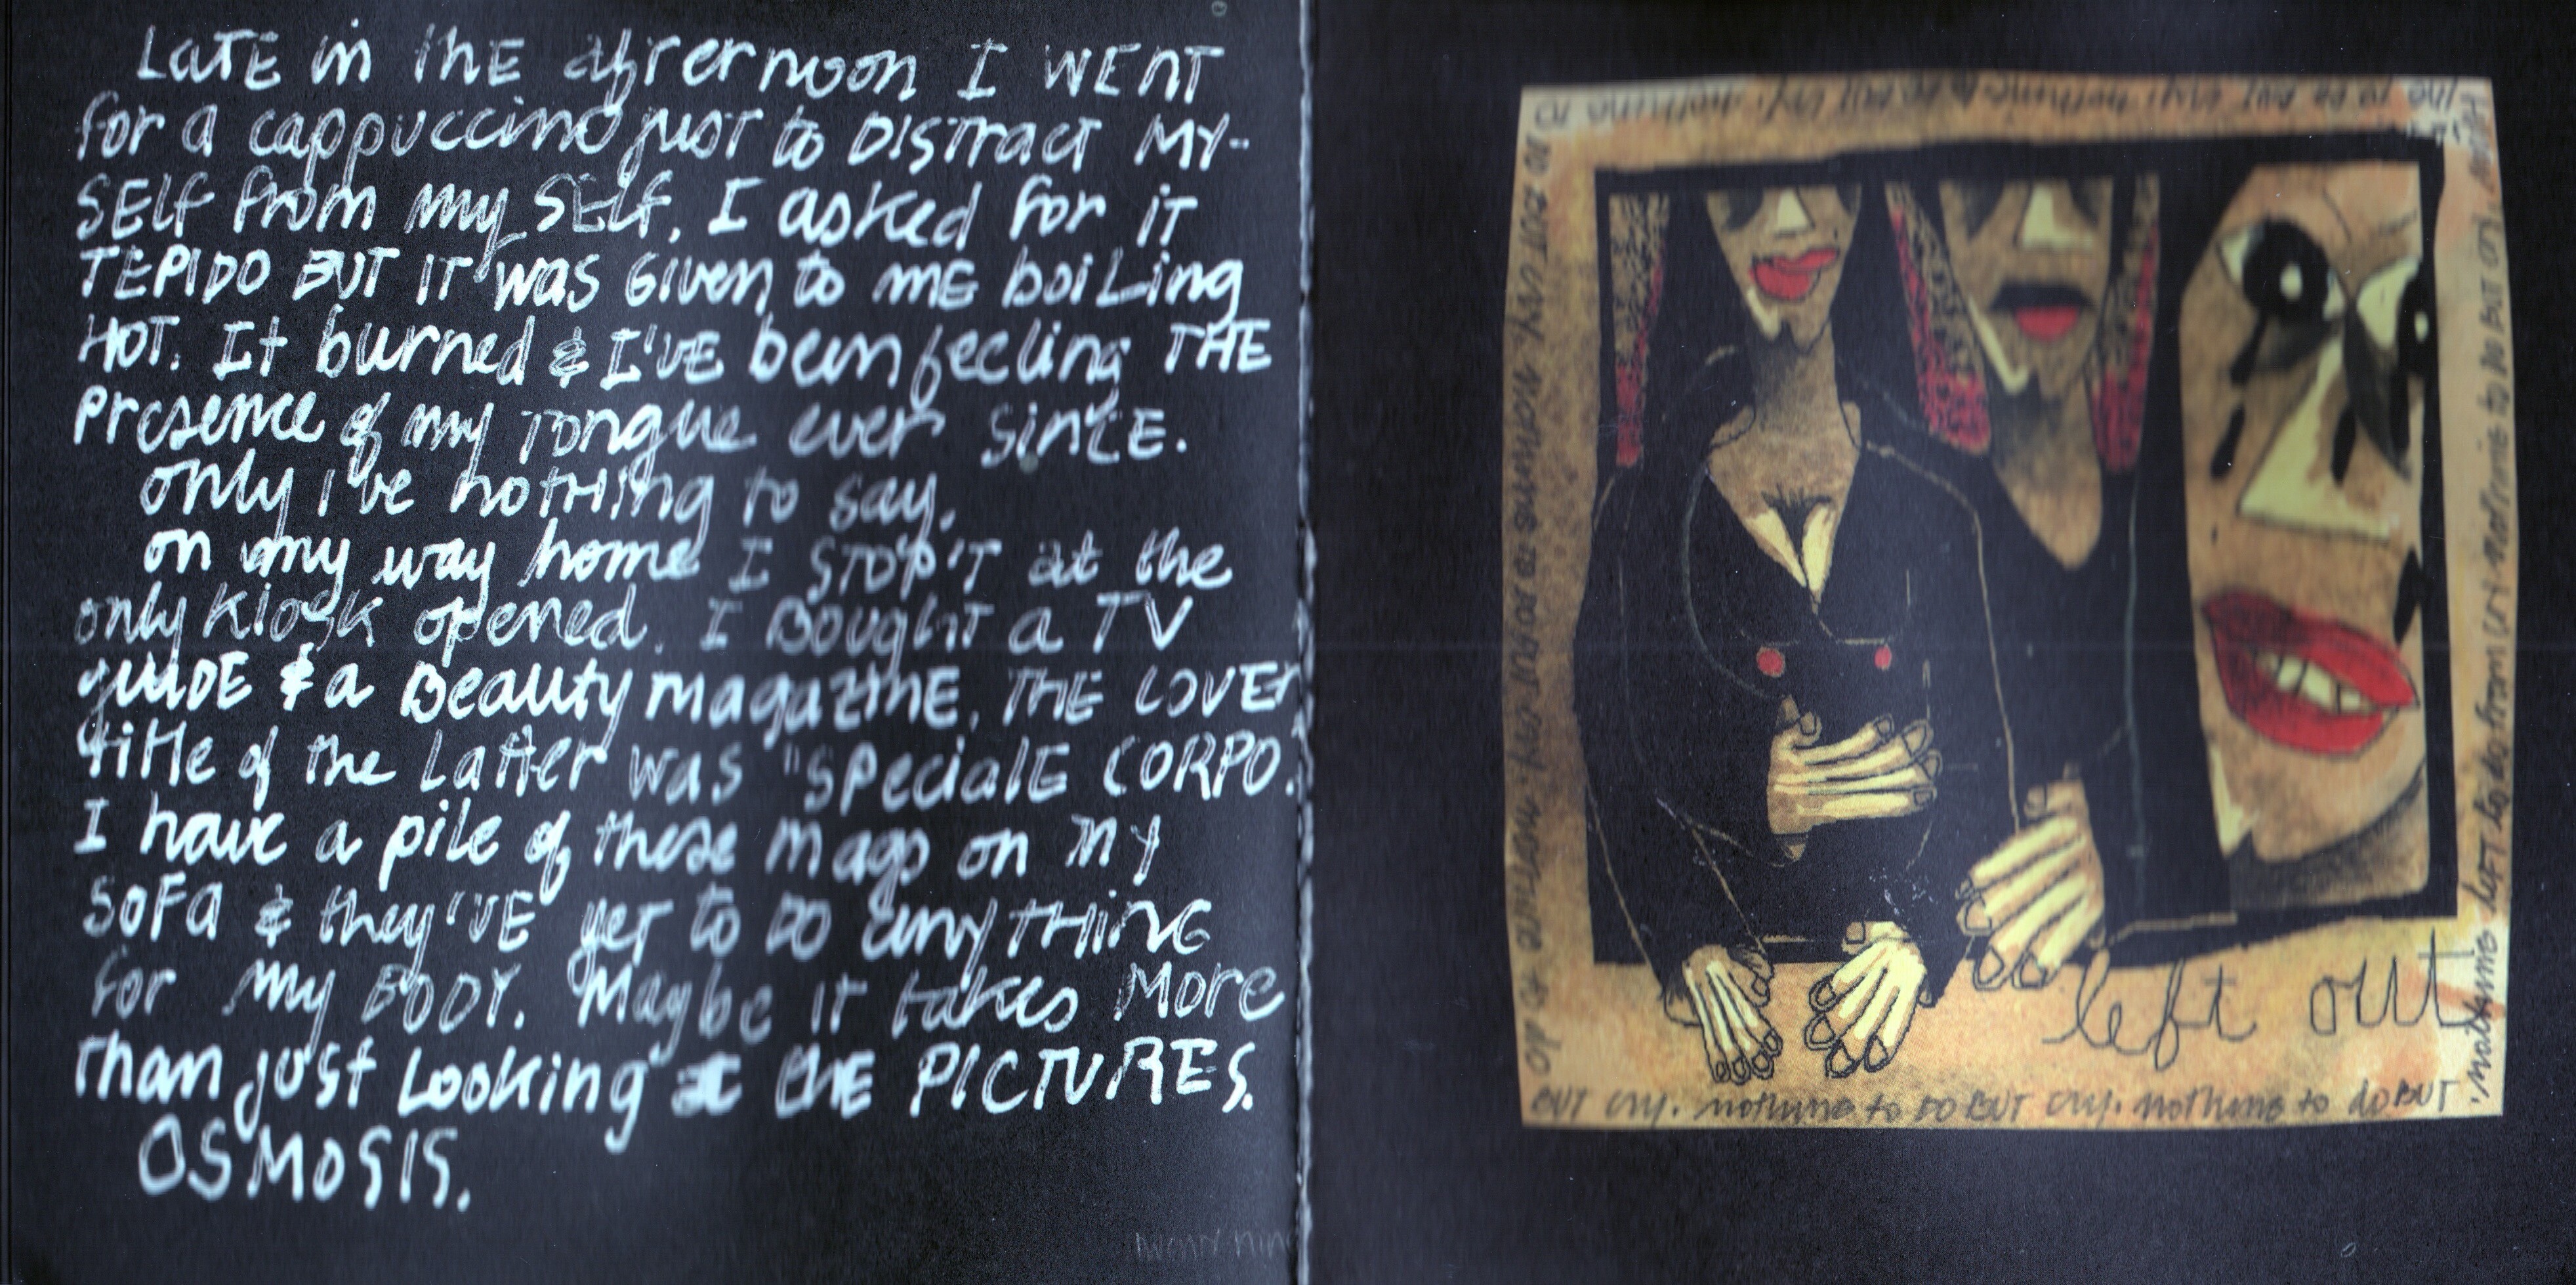 LATE in THE afTerNoon I WENT
for a cappuccino just to DISTract MY-
SELF from my SELF. I asked for iT
TEPIDO BUT IT was Given to mE boiLing
HOT. It burned & I'VE been feeling THE
Presence of my Tongue ever SincE.
only i've noTHing to say.
on my way home I STOP'T at the
only kiosk opened. I BoughT a TV
guiDE & a Beauty magazinE. THE COVEr
title of the Latter was "SpecialE CORPO."
I have a pile of these mags on my
SoFa & they'VE yet to DO anyTHiNG
for my BODY. Maybe it takes More
Than just Looking at thE PICTURES.
OSMOSIS.
left out
BUT cry. nothing to DO BUT cry. nothing to do BUT
nothing LEFT to do from cry. nothing to do but cry.
to do but cry. nothing to do but cry. nothing